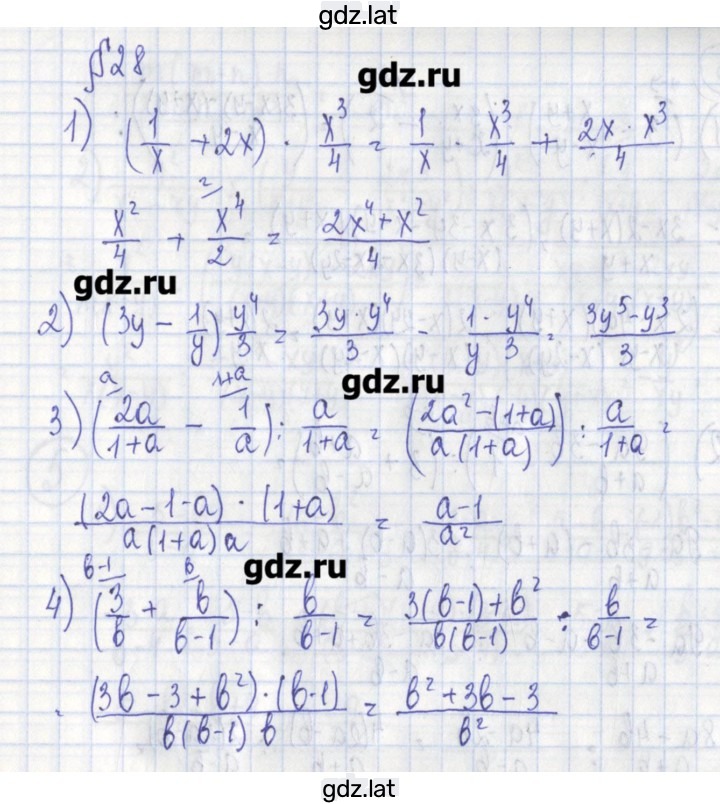 gdz.lat
§28
gdz.ru
1) (1/x + 2x) · x³/4 = 1/x · x³/4 + 2x · x³/4
x²/4 + x⁴/2 ² = 2x⁴ + x²/4
gdz.ru
2) (3y − 1/y) y⁴/3 = 3y · y⁴/3 − 1 · y⁴/y 3 = 3y⁵ − y³/3
gdz.ru
3) (2a/1+a ᵃ − 1/a ¹⁺ᵃ) : a/1+a = (2a² − (1+a)/a(1+a)) : a/1+a =
(2a − 1 − a) · (1+a)/a(1+a) a = a−1/a²
gdz.ru
4) (3/b ᵇ⁻¹ + b/b−1 ᵇ) : b/b−1 = 3(b−1) + b²/b(b−1) : b/b−1 =
(3b − 3 + b²) · (b−1)/b(b−1) b = b² + 3b − 3/b²
gdz.lat